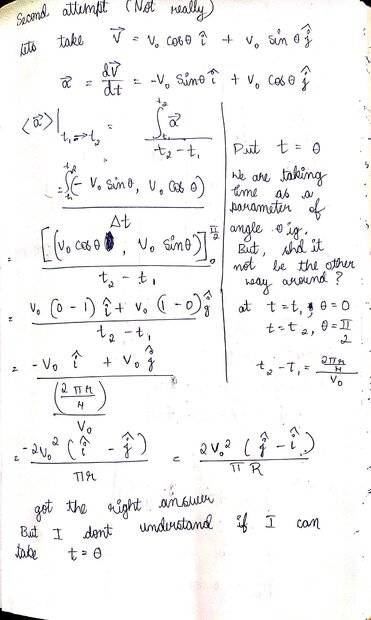 Second attempt (Not really)
lets take V⃗ = V₀ cosθ î + V₀ sin θ ĵ
a⃗ = dV⃗/dt = -V₀ Sinθ î + V₀ cosθ ĵ
⟨a⃗⟩|t₁→t₂ = ∫ₜ₁^t₂ a⃗ / t₂ - t₁
= ∫(- V₀ sinθ, V₀ cosθ) / Δt
= [(V₀ cosθ, V₀ sinθ)]₀^π/2 / t₂ - t₁
= V₀ (0 - 1) î + V₀ (1 - 0) ĵ / t₂ - t₁
= -V₀ î + V₀ ĵ / (2πr/4) / V₀
= -2V₀² (î - ĵ) / πr = 2V₀² (ĵ - î) / πR
Put t = θ
we are taking
time as a
parameter of
angle θ ig.
But, shd it
not be the other
way around?
at t = t₁, θ = 0
t = t₂, θ = π/2
t₂ - T₁ = 2πr/4 / V₀
got the right answer
But I dont understand if I can
take t = θ